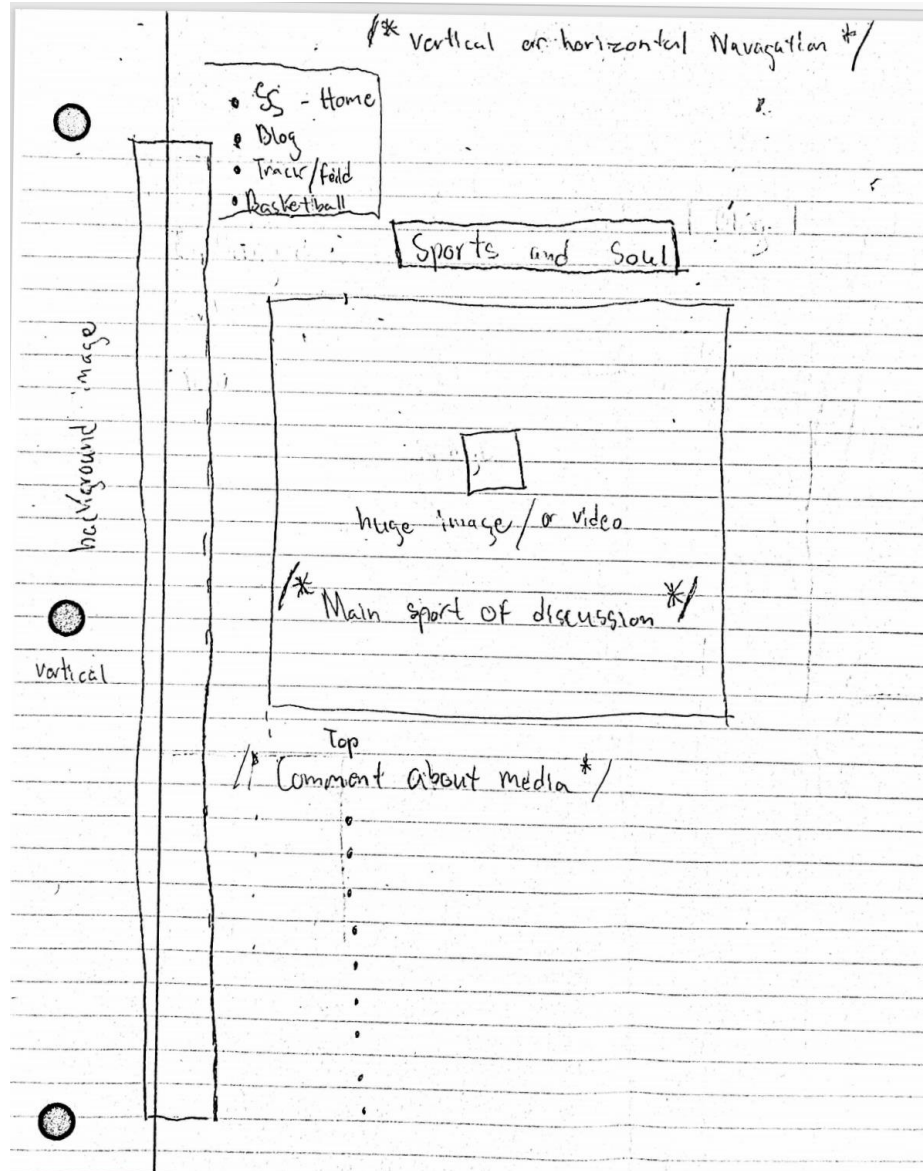 /* vertical or horizontal Navagation */
SS - Home
Blog
Track/feild
Basketball
Sports and Soul
background image
vertical
huge image/or video
/* Main sport of discussion */
Top
/* Comment about media */